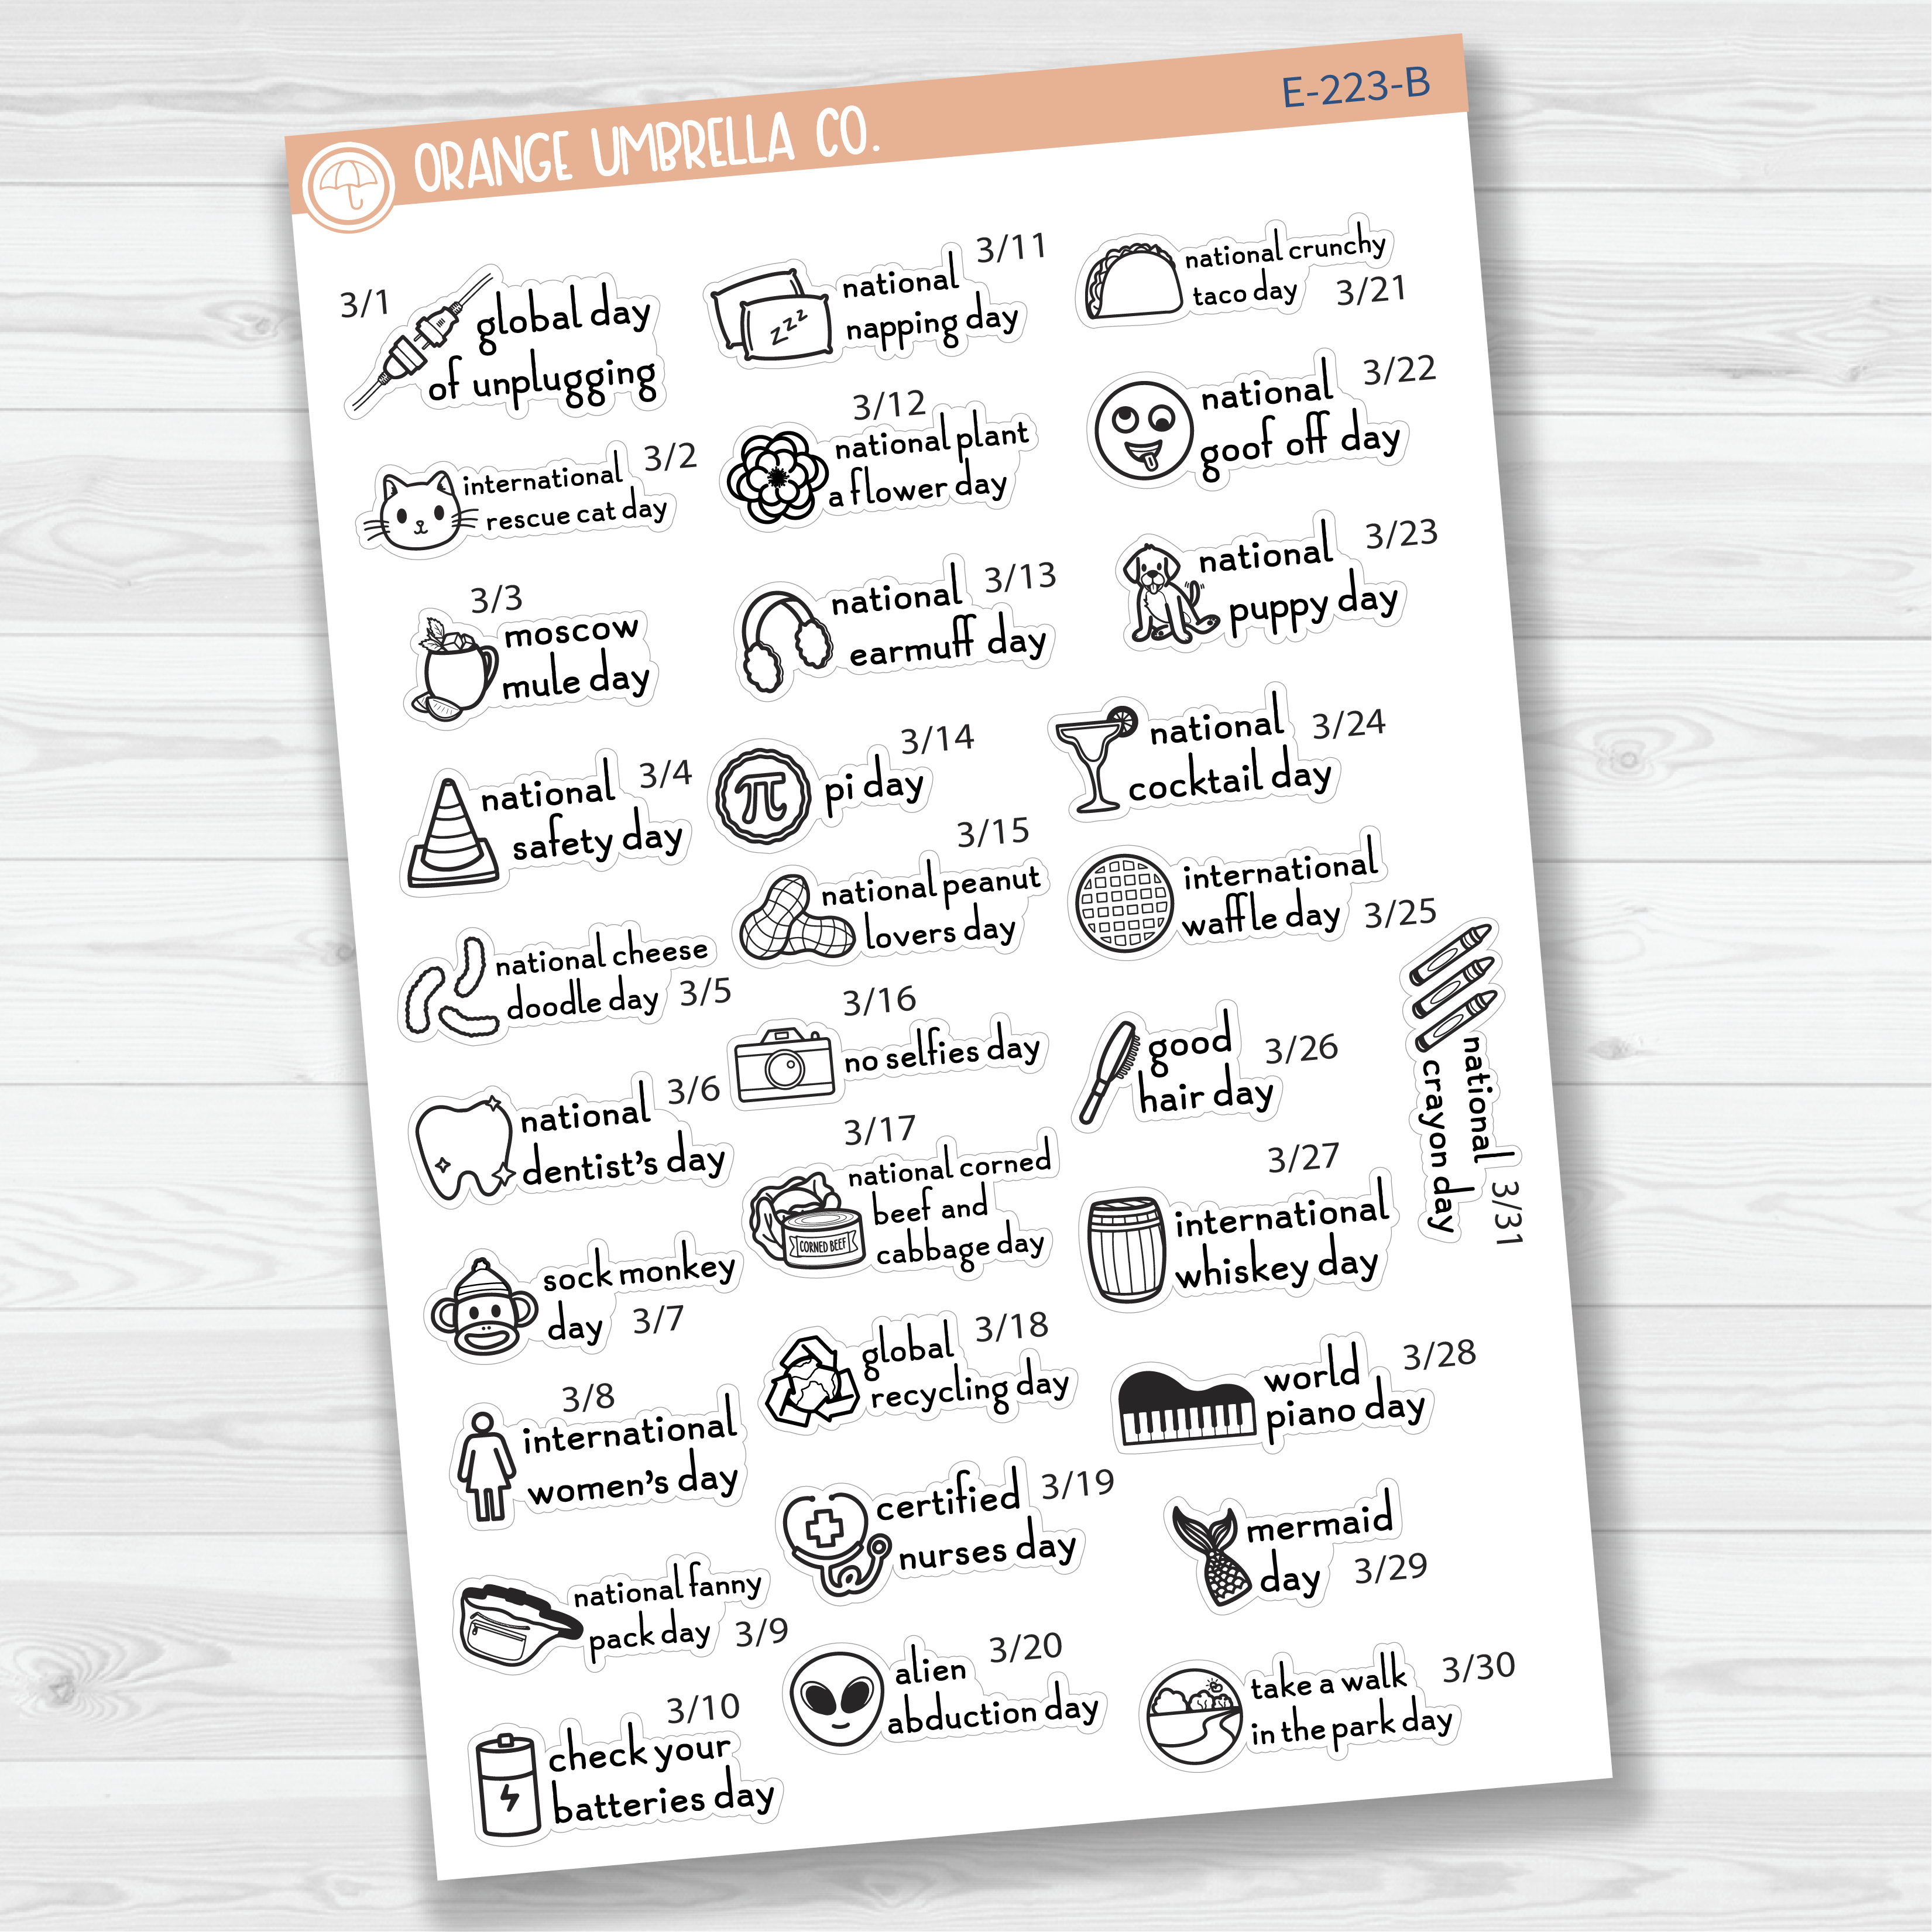 ORANGE UMBRELLA CO.
E-223-B
3/1
global day
of unplugging
3/2
international
rescue cat day
3/3
moscow
mule day
national
3/4
safety day
national cheese
doodle day
3/5
3/6
national
dentist's day
sock monkey
day
3/7
3/8
international
women's day
national fanny
pack day
3/9
3/10
check your
batteries day
3/11
national
napping day
zzz
3/12
national plant
a flower day
national
3/13
earmuff day
3/14
π
pi day
3/15
national peanut
lovers day
3/16
no selfies day
3/17
national corned
beef and
cabbage day
CORNED BEEF
global
3/18
recycling day
certified
3/19
nurses day
3/20
alien
abduction day
national crunchy
taco day
3/21
3/22
national
goof off day
3/23
national
puppy day
national
3/24
cocktail day
international
waffle day
3/25
good
3/26
hair day
3/27
international
whiskey day
world
3/28
piano day
mermaid
day
3/29
take a walk
3/30
in the park day
national
crayon day
3/31